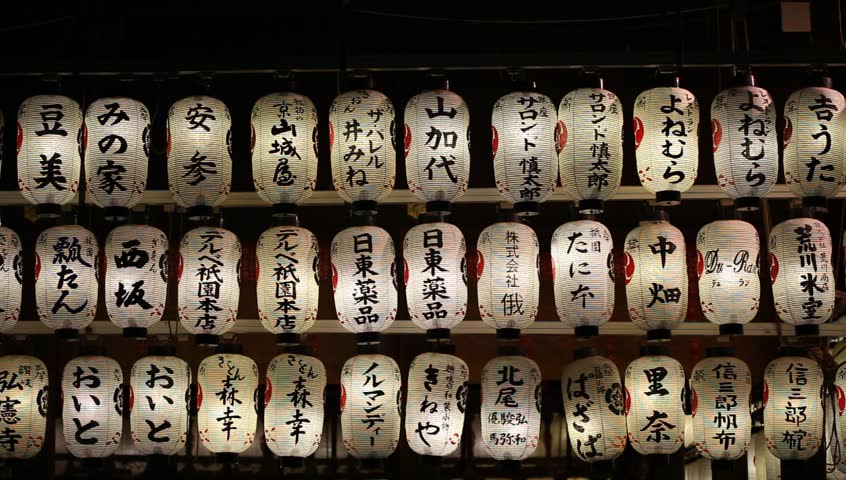 豆美
みの家
安参
京 山城屋
ザパレル 井みね
山加代
サロンド慎太郎
サロンド慎太郎
よねむら
よねむら
吉うた
瓢たん
西坂
テルベ祇園本店
テルベ祇園本店
日東薬品
日東薬品
株式会社 俄
祇園 たに本
中畑
Du-Ran デューラン
荒川氷室
弘憲寺
おいと
おいと
さんど 森幸
さんど 森幸
ノルマンディー
きねや
北尾
ばざば
里奈
信三郎帆布
信三郎帆布